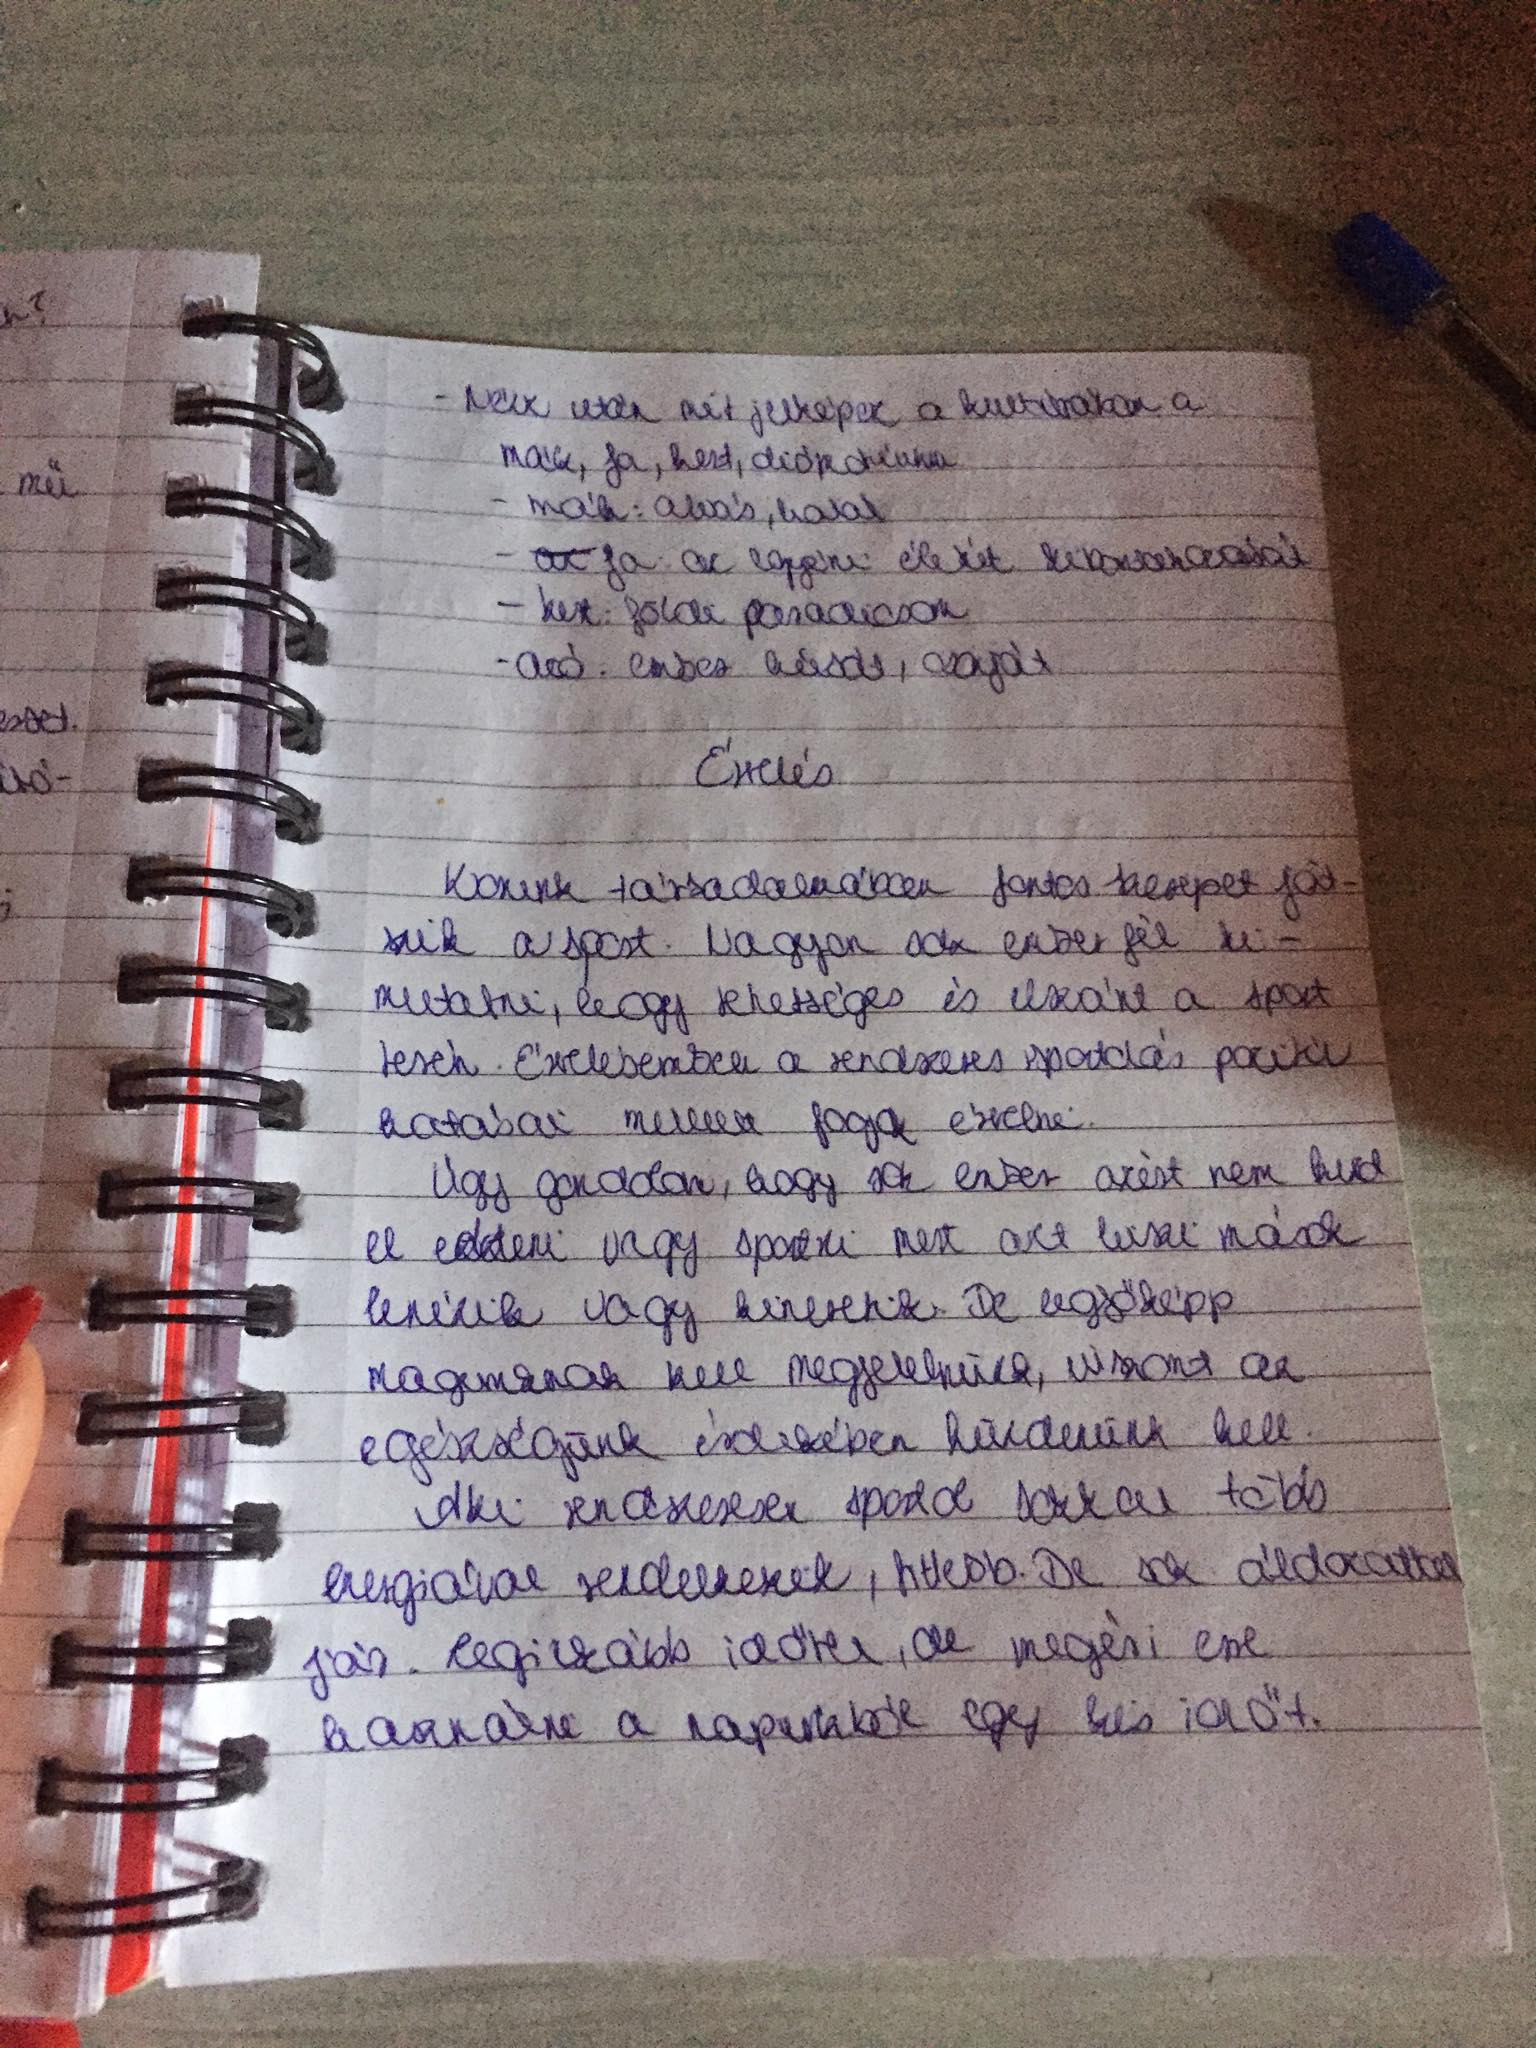 n?
mű
- Nézz után mit jelképez a kultúrákban a
mák, fa, kert, dió
- mák: alvás, halál
- fa: az egyéni életút
- kert: földi paradicsom
- dió: ember
Érvelés
Korunk társadalmában fontos szerepet ját-
szik a sport. Nagyon sok ember fél ki-
mutatni, hogy tehetséges és ki a sport
terén. Érvelésemben a rendszeres sportolás pozitív
hatásai mellett fogok érvelni.
Úgy gondolom, hogy sok ember azért nem kezd
el edzeni vagy sportolni mert azt hiszi mások
lenézik vagy kinevetik. De legfőképp
magunknak kell megfelelnünk, viszont az
egészségünk érdekében küzdenünk kell.
Aki rendszeresen sportol sokkal több
energiával rendelkezik, fittebb. De sok áldozattal
jár. Leginkább időtől, de megéri erre
használni a napunkból egy kis időt.